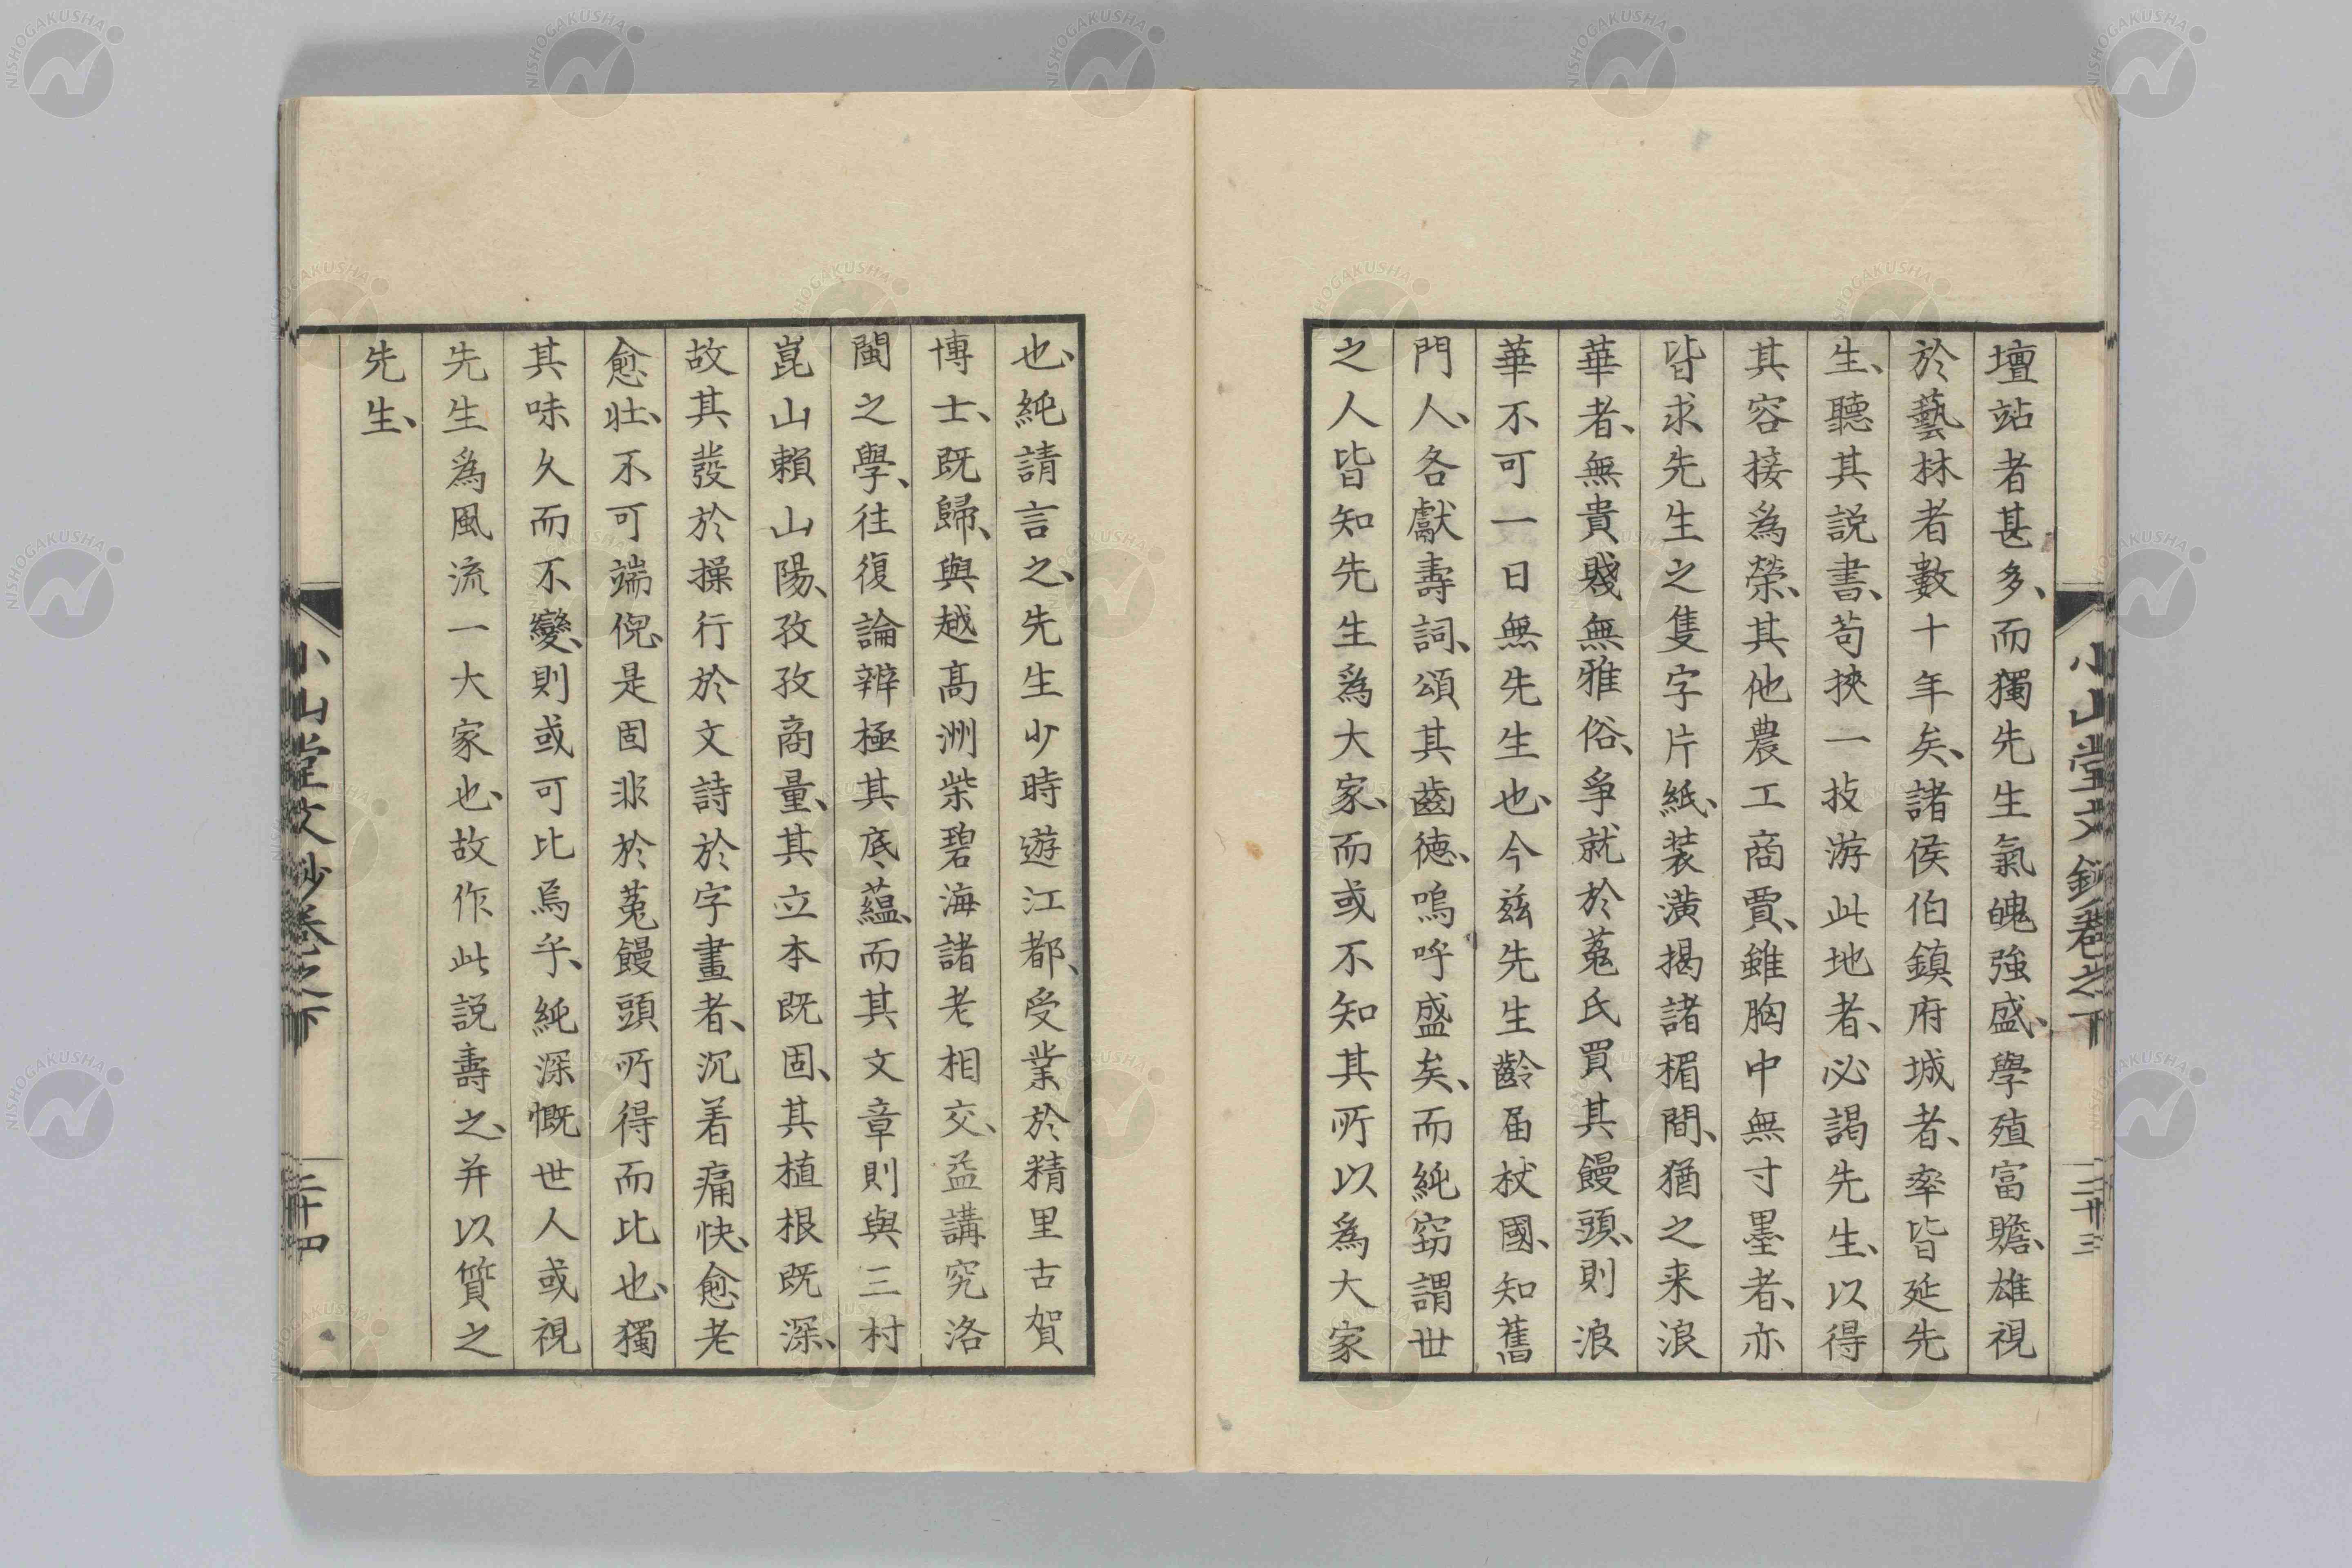 壇站者甚多、而獨先生氣魄強盛、學殖富贍、雄視
於藝林者數十年矣、諸侯伯鎮府城者、率皆延先
生、聽其説書、苟挾一技游此地者、必謁先生、以得
其容接爲榮、其他農工商賈、雖胸中無寸墨者、亦
皆求先生之隻字片紙、装潢揭諸楣間、猶之来浪
華者、無貴賤無雅俗、爭就於菟氏買其饅頭、則浪
華不可一日無先生也、今茲先生齡届杖國、知舊
門人、各獻壽詞、頌其齒德、嗚呼盛矣、而純窃謂世
之人皆知先生爲大家、而或不知其所以爲大家
也、純請言之、先生少時遊江都、受業於精里古賀
博士、既歸、與越高洲柴碧海諸老相交、益講究洛
閩之學、往復論辨極其底蘊、而其文章則與三村
崑山賴山陽、孜孜商量、其立本既固、其植根既深、
故其發於操行於文詩於字畫者、沉着痛快、愈老
愈壮、不可端倪、是固非於菟饅頭所得而比也、獨
其味久而不變、則或可比焉乎、純深慨世人或視
先生爲風流一大家也、故作此説壽之、并以質之
先生、
小山堂文鈔卷之下
二十三
小山堂文鈔卷之下
二十四
NISHOGAKUSHA